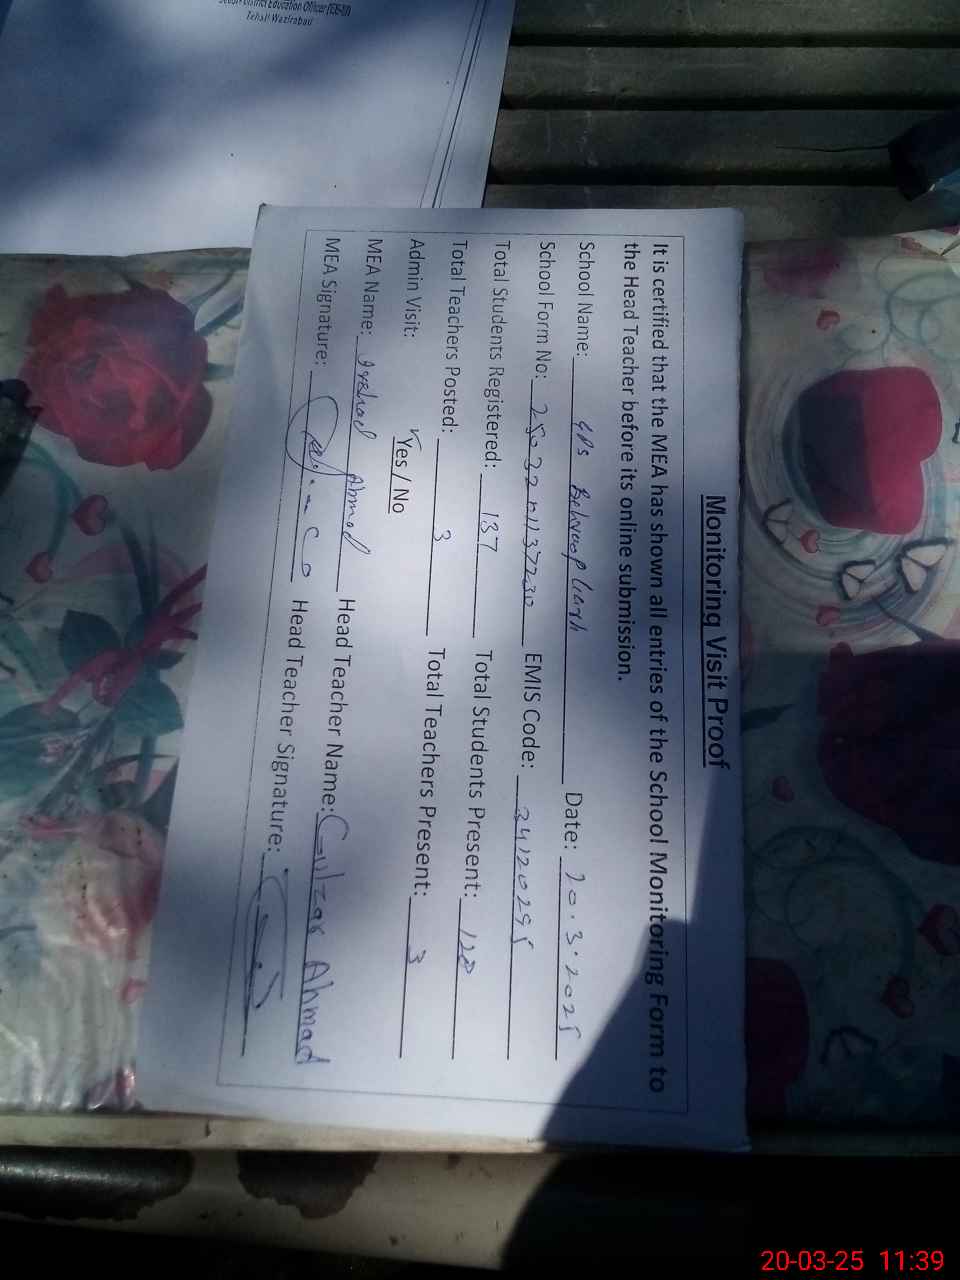 Deputy District Education Officer (EE-W)
Tehsil Wazirabad
Monitoring Visit Proof
It is certified that the MEA has shown all entries of the School Monitoring Form to
the Head Teacher before its online submission.
School Name: GPS Date: 20.3.2025
School Form No: EMIS Code: 34120295
Total Students Registered: 137 Total Students Present: 128
Total Teachers Posted: 3 Total Teachers Present: 3
Admin Visit: Yes / No
MEA Name: Irshad Ahmad Head Teacher Name: Gulzar Ahmad
MEA Signature: Head Teacher Signature:
20-03-25 11:39